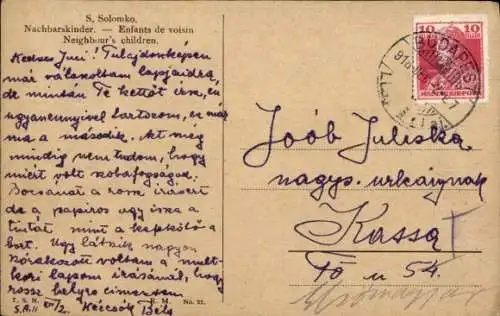 S. Solomko.
Nachbarskinder. — Enfants de voisin
Neighbour's children.
Kedves Juci! Tulajdonképen
már válaszoltam lapjaidra,
de mintán Te kettőt irsz, én
ugyanennyivel tartozom, ez már
ma a második. Azt meg
mindig nem tudom, hogy
miért volt szobafogságod.
Bocsánat a rossz irásért
de a papiros ugy issza a
tintát mint a kefekötő a
bort. Ugy látszik nagyon
szórakozott voltam a mult-
kori lapom irásánál, hogy
rossz helyre cimeztem
Béla
T. S. N. R. M. No. 22.
10 10
MAGYAR KIR. POSTA
BUDAPEST
Joób Juliska
nagys. urleánynak
Kassa
Fő u 54.